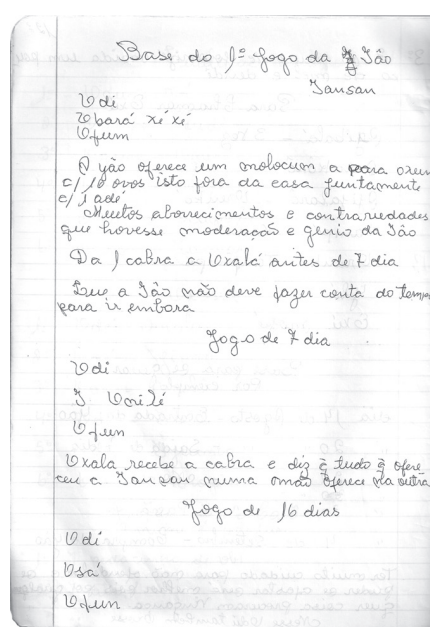 Base do 1º Jogo da Yáo
Iansan
Odi
Obará xé xé
Ofum
A yáo oferece um molocum a para oxum
c/ 10 ovos isto fora da casa juntamente
c/ 1 adé
Muitos aborrecimentos e contrariedades
que hovesse moderação e genio da Iáo
Da 1 cabra a Oxalá antes de 7 dia
Que a Iáo não deve fazer conta do tempo
para ir embora
Jogo de 7 dia
Odi
Ofun
Oxala recebe a cabra e diz q tudo q ofere
ceu a Iansan numa mão oferece na outra
Jogo de 16 dias
Odí
Osá
Ofun